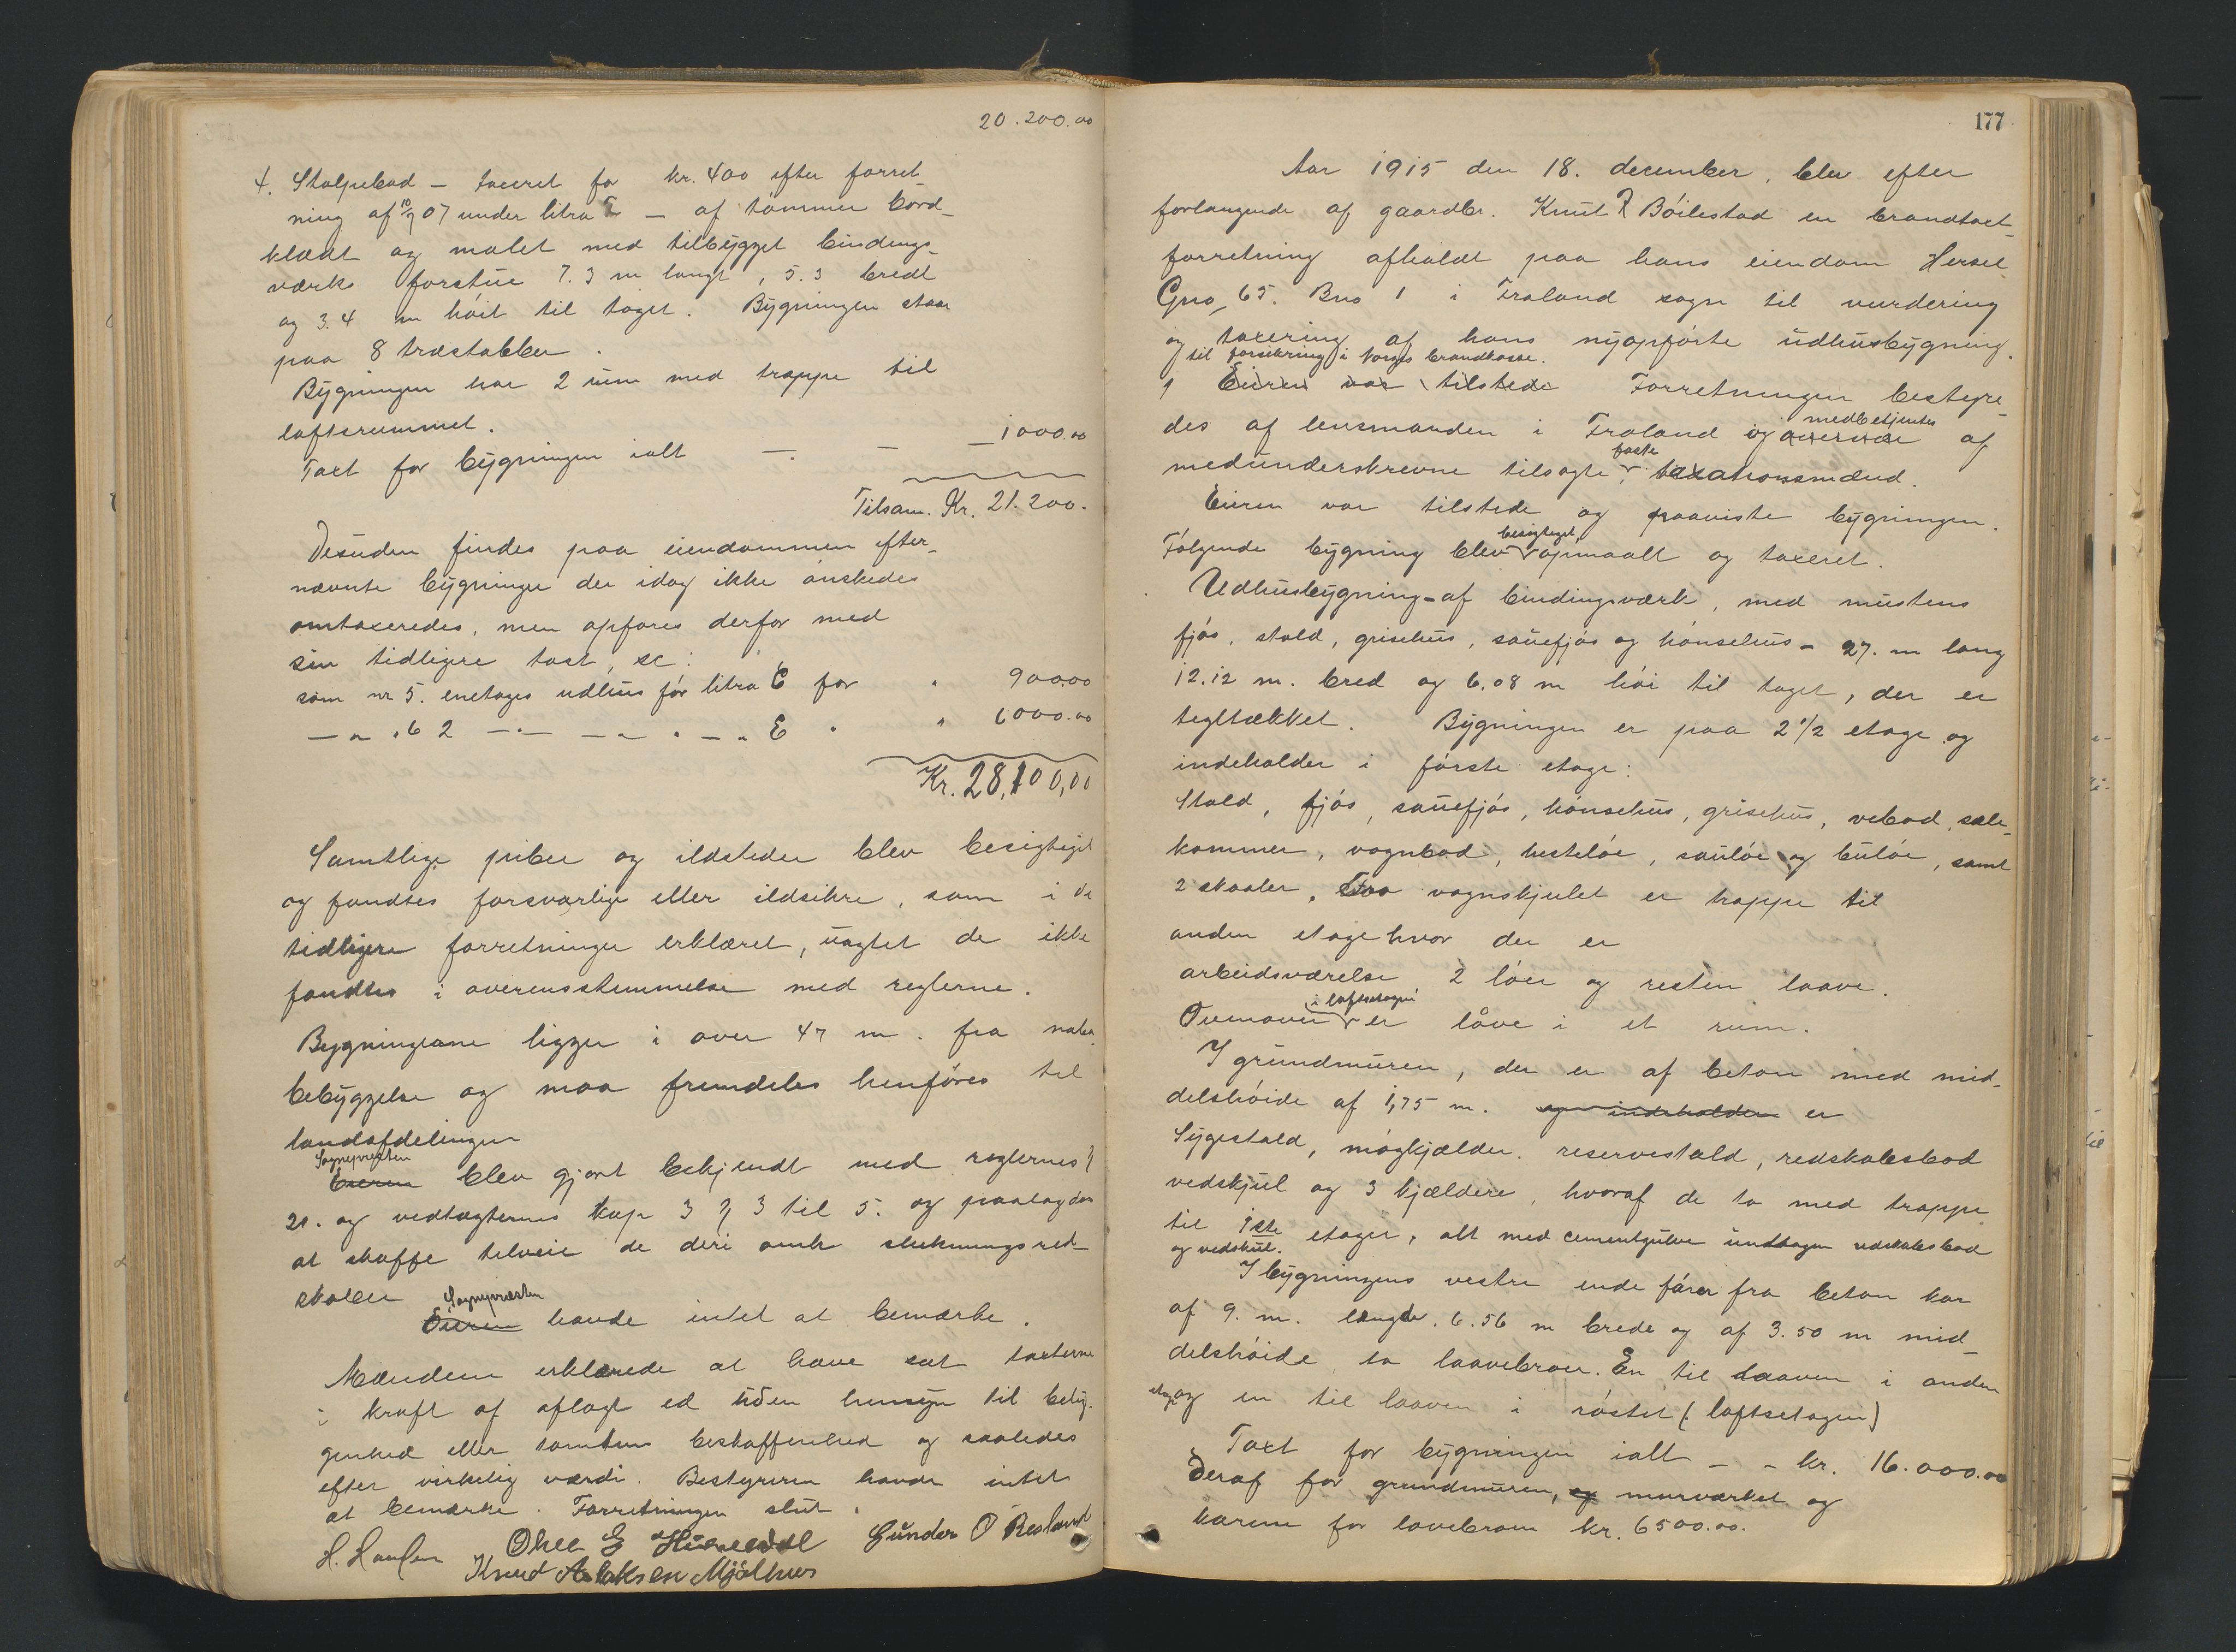 20.200.00
4. Stolpebod – taxeret for kr. 400 efter forret
ning af 10/9 07 under litra – af tømmer bord-
klædt og malet med tilbygget bindings-
værks forstue 7.3 m langt, 5.3 bredt
og 3.4 m høit til taget. Bygningen staar
paa 8 træstabber.
Bygningen har 2 rum med trappe til
loftsrummet.
Taxt for bygningen ialt – – – 1000.00
Tilsam. Kr. 21.200.-
Desuden findes paa eiendommen efter-
nævnte bygninger der idag ikke ønskedes
omtaxeredes, men opføres derfor med
sin tidligere taxt, sc:
som nr 5. enetages udhus før litra C for " 900.00
— " " 6 2 — " — — " — " E " " 6000.00
Kr. 28,100,00
Samtlige piber og ildsteder blev besigtiget
og fandtes forsvarlige eller ildsikre, som i de
tidligere forretninger erklæret, uagtet de ikke
fandtes i overensstemmelse med reglerne.
Bygningerne ligger i over 47 m. fra nabo
bebyggelse og maa fremdeles henføres til
landafdelingen
Sognepresten
Eieren blev gjort bekjendt med reglernes §
21. og vedtægternes kap 3 § 3 til 5. og paalagdes
at skaffe tilveie de deri omh slukningsred-
skaber
Sognepræsten
Eieren havde intet at bemærke.
Mændene erklærede at have sat taxterne
i kraft af aflagt ed uden hensyn til belig-
genhed eller tomtens beskaffenhed og saaledes
efter virkelig værdi. Bestyreren havde intet
at bemærke. Forretningen slut.
Gunder O Resland
Knud Aslaksen Mjølhus
177
Aar 1915 den 18. december, blev efter
forlangende af gaardbr. Knut Bøilestad en brandtaxt-
forretning afholdt paa hans eiendom Hersel
Gno 65. Bno 1 i Froland sogn til vurdering
og taxering af hans nyopførte udhusbygning.
til forsikring i Norges brandkasse.
Eieren var tilstede Forretningen bestyre-
des af lensmanden i Froland og medbetjentes af
medunderskrevne tilsagte faste taxationsmænd.
Eieren var tilstede og paaviste bygningen.
Følgende bygning blev besigtiget, opmaalt og taxeret.
Udhusbygning – af bindingsværk, med mustens
fjøs, stald, grisehus, sauefjøs og hønsehus – 27. m lang
12.12 m. bred og 6,08 m høi til taget, der er
tegltækket. Bygningen er paa 2 1/2 etage og
indeholder i første etage:
Stald, fjøs, sauefjøs, hønsehus, grisehus, vebod, sæle-
kammer, vognbod, hesteløe, sauløe og buløe, samt
2 skaaler. Fra vognskjulet er trappe til
anden etage hvor der er
arbeidsværelse 2 løer og resten laave.
Ovenover i loftsetagen er låve i et rum.
I grundmuren, der er af beton med mid-
delshøide af 1,75 m. og indeholder er
Sygestald, møgkjælder. reservestald, redskabsbod
vedskjul og 3 kjældere, hvoraf de to med trappe
til 1ste etager, alt med cementgulve undtagen redskabsbod
og vedskul.
I bygningens vestre ende fører fra beton kar
af 9. m. længde. 6.56 m brede og af 3.50 m mid-
delshøide to laavebroer. En til laaven i anden
etage og en til laaven i røstet (loftsetagen)
Taxt for bygningen ialt – – kr. 16.000.00
Deraf for grundmuren, og murværket og
karene for lavebroen kr. 6500.00.